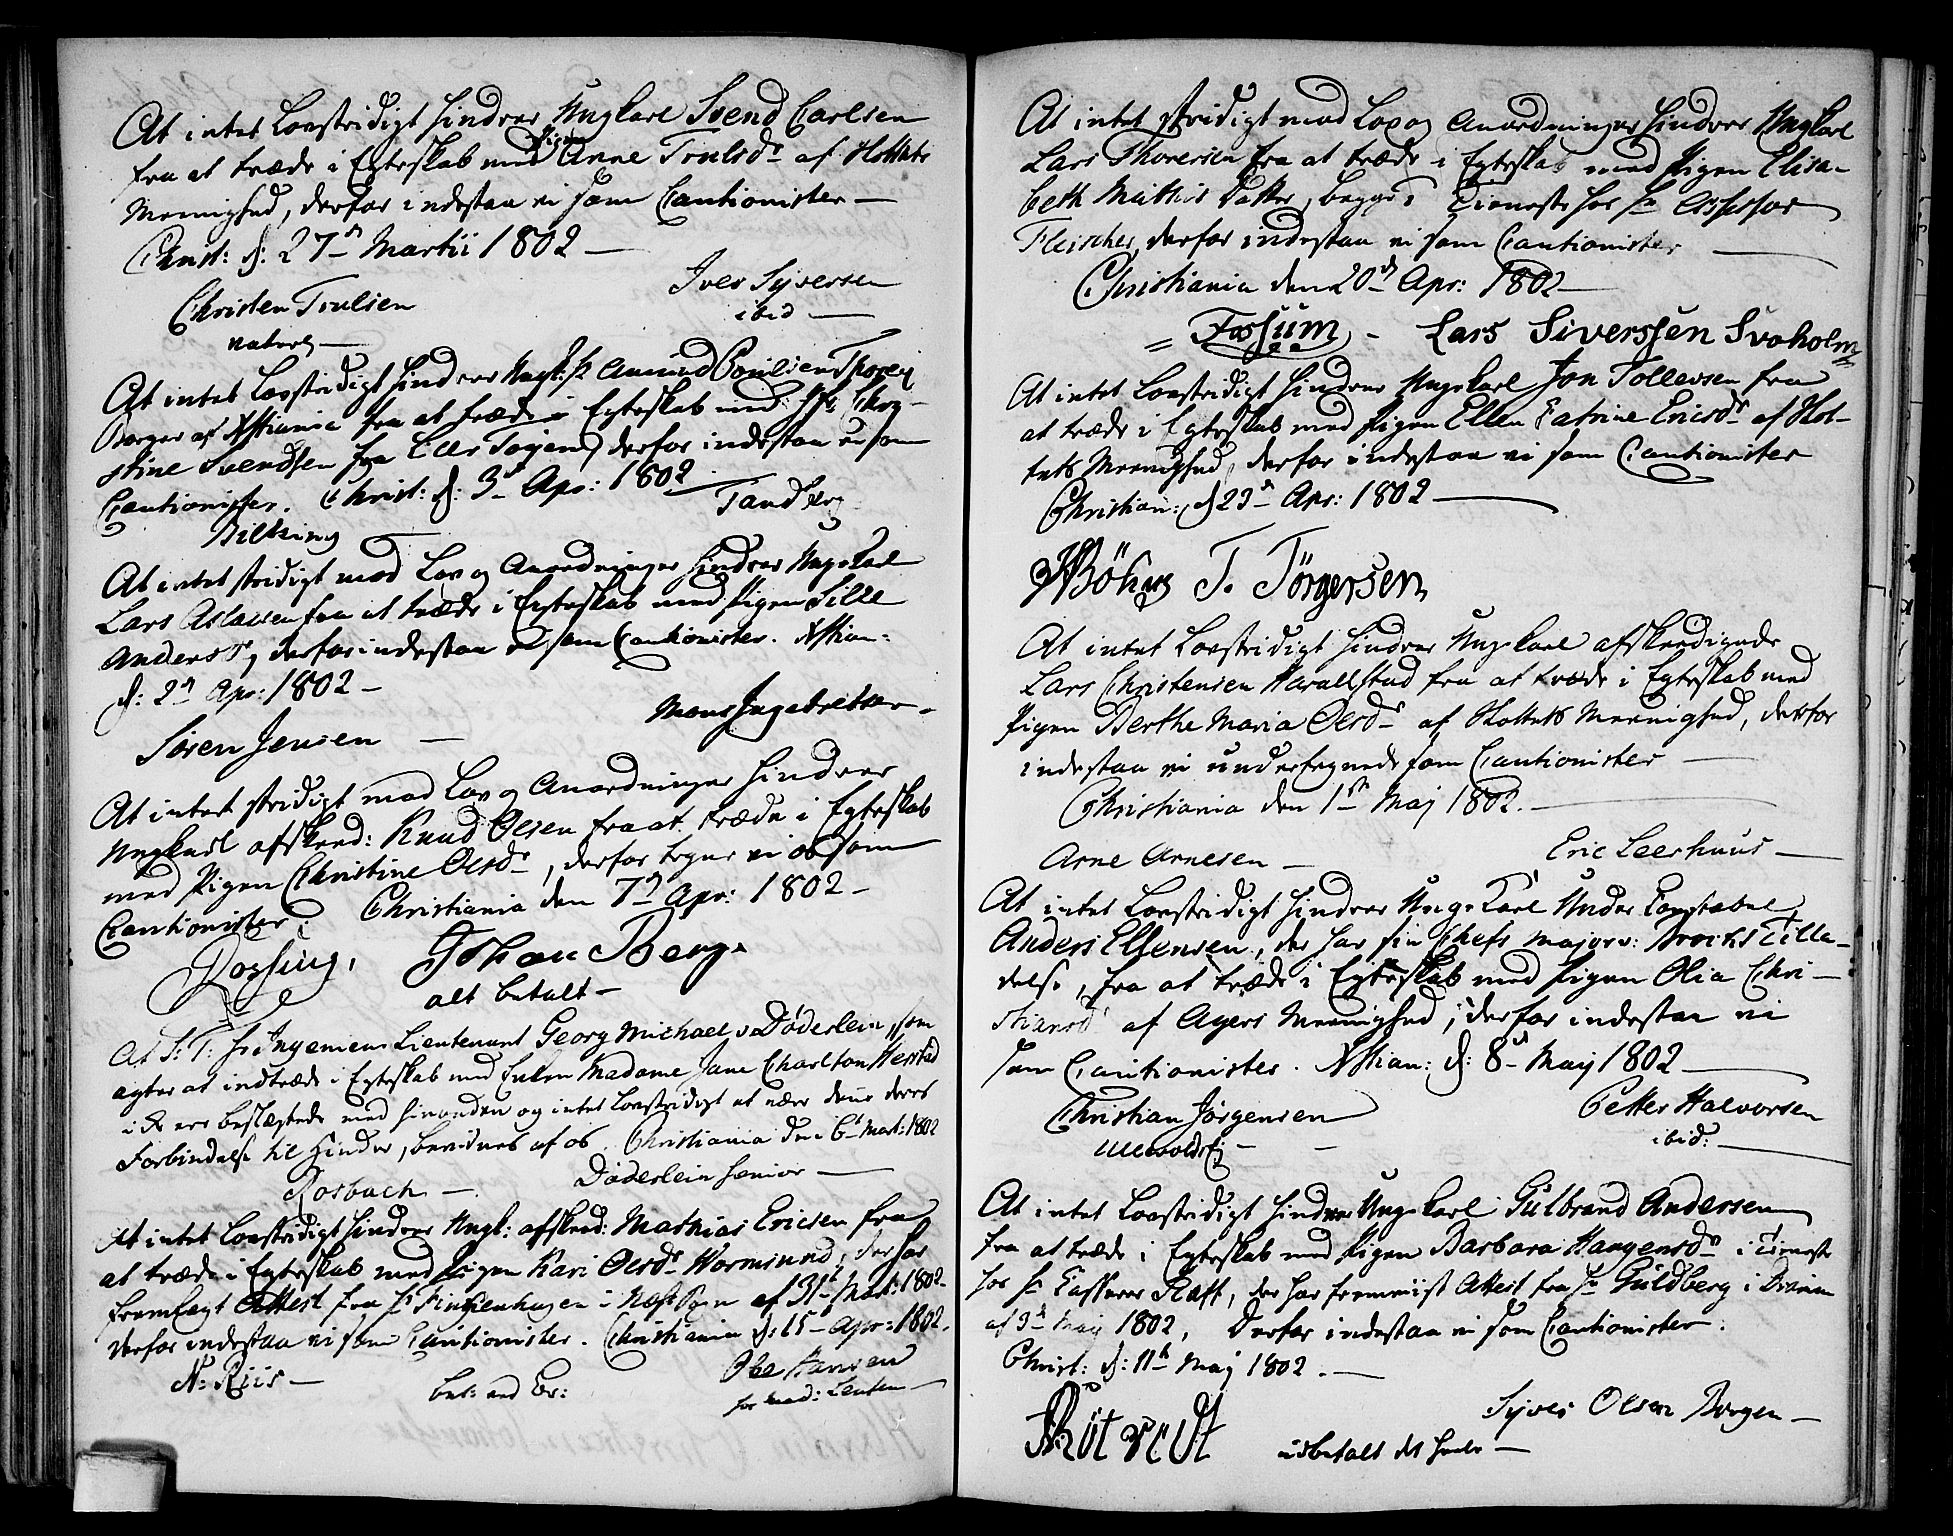 At intet Lovstridigt hindrer Ungkarl Svend Carlsen
fra at træde i Egteskab med Pigen Anne Trulsdr af Slottets
Meenighed, derfor indestaa vi som Cautionister
Christ: d: 27de Martii 1802
Christen Trulsen
Iver Syversen
ibid
At intet Lovstridigt hindrer Ungk: Hr Amund Poulsen
Borger af Xstiania fra at træde i Egteskab med Jfr: Chri-
stine Svendsen fra derfor indestaa vi som
Cautionister. Christ: d: 3de Apr: 1802
Tandberg
At intet stridigt mod Lov og Anordninger hindrer Ungekarl
Lars Aslaksen fra at træde i Egteskab med Pigen Sille
Andersdr, derfor indestaa vi som Cautionister. Xstian:
d: 2de Apr: 1802
Mons Ingebretsen
Søren Jensen
At intet stridigt mod Lov og Anordninger hindrer
Ungkarl afskeed: Knud Olsen fra at træde i Egteskab
med Pigen Christine Olsdr, derfor tegner vi os som
Cautionister. Christiania den 7de Apr: 1802
Johan Berg
alt betalt
At S: T: Hr Ingenieur Lieutenant Georg Michael v Døderlein, som
agter at indtræde i Egteskab med Enken Madame Jane Charlton
i er beslægtede med hinanden og intet Lovstridigt at være denne deres
Forbindelse til Hinder, bevidnes af os. Christiania den 6te Mart: 1802
Døderlein senior
Rosbach
At intet Lovstridigt hindrer Ungk: afskeed: Mathias Ericsen fra
at træde i Egteskab med Pigen Kari Olsdr Wormsund, der har
fremlagt Attest fra Hr Finkenhagen i Næss af 31te Mart: 1802
derfor indestaa vi som Cautionister. Christiania d: 15de Apr: 1802.
N: Riis
Ole Hansen
At intet stridigt mod Lov og Anordninger hindrer Ungkarl
Lars Thoresen fra at træde i Egteskab med Pigen Elisa-
beth Mathis Datter, begge i Tieneste hos Hr Assessor
Fleischer, derfor indestaa vi som Cautionister
Christiania den 20de Apr: 1802
Fossum - Lars Siverssen Svoholm
At intet Lovstridigt hindrer Ungekarl Jon Tollevsen fra
at træde i Egteskab med Pigen Ellen Catrine Ericsdr af Slot-
tets Meenighed, derfor indestaa vi som Cautionister
Christian: d 23de Apr: 1802
T. Törgersen
At intet Lovstridigt hindrer Ungekarl afskeedigede
Lars Christensen Harallstad fra at træde i Egteskab med
Pigen Berthe Maria Olsdr af Slottets Meenighed, derfor
indestaa vi undertegnede som Cautionister
Christiania den 1ste Maj 1802.
Arne Arnesen
Eric Leerhuus
At intet Lovstridigt hindrer Unge Karl Under Constabel
Anders Ellensen, der har sin Chefs Major v: Tilla-
delse, fra at træde i Egteskab med Pigen Olia Chri-
stiansdr af Agers Meenighed, derfor indestaa vi
som Cautionister. Xstian: d: 8de May 1802
Christian Jørgensen
Petter Halvorsen
ibid:
At intet Lovstridigt hindrer Ungekarl Gulbrand Andersen
fra at træde i Egteskab med Pigen Barbara Haagensdr i Tieneste
hos Hr Casserer Raft, der har fremviist Attest fra Hr Guldberg i
af 9de May 1802, Derfor indestaa vi som Cautionister.
Christ: d: 11te Maj 1802.
Syver Olsen Borgen